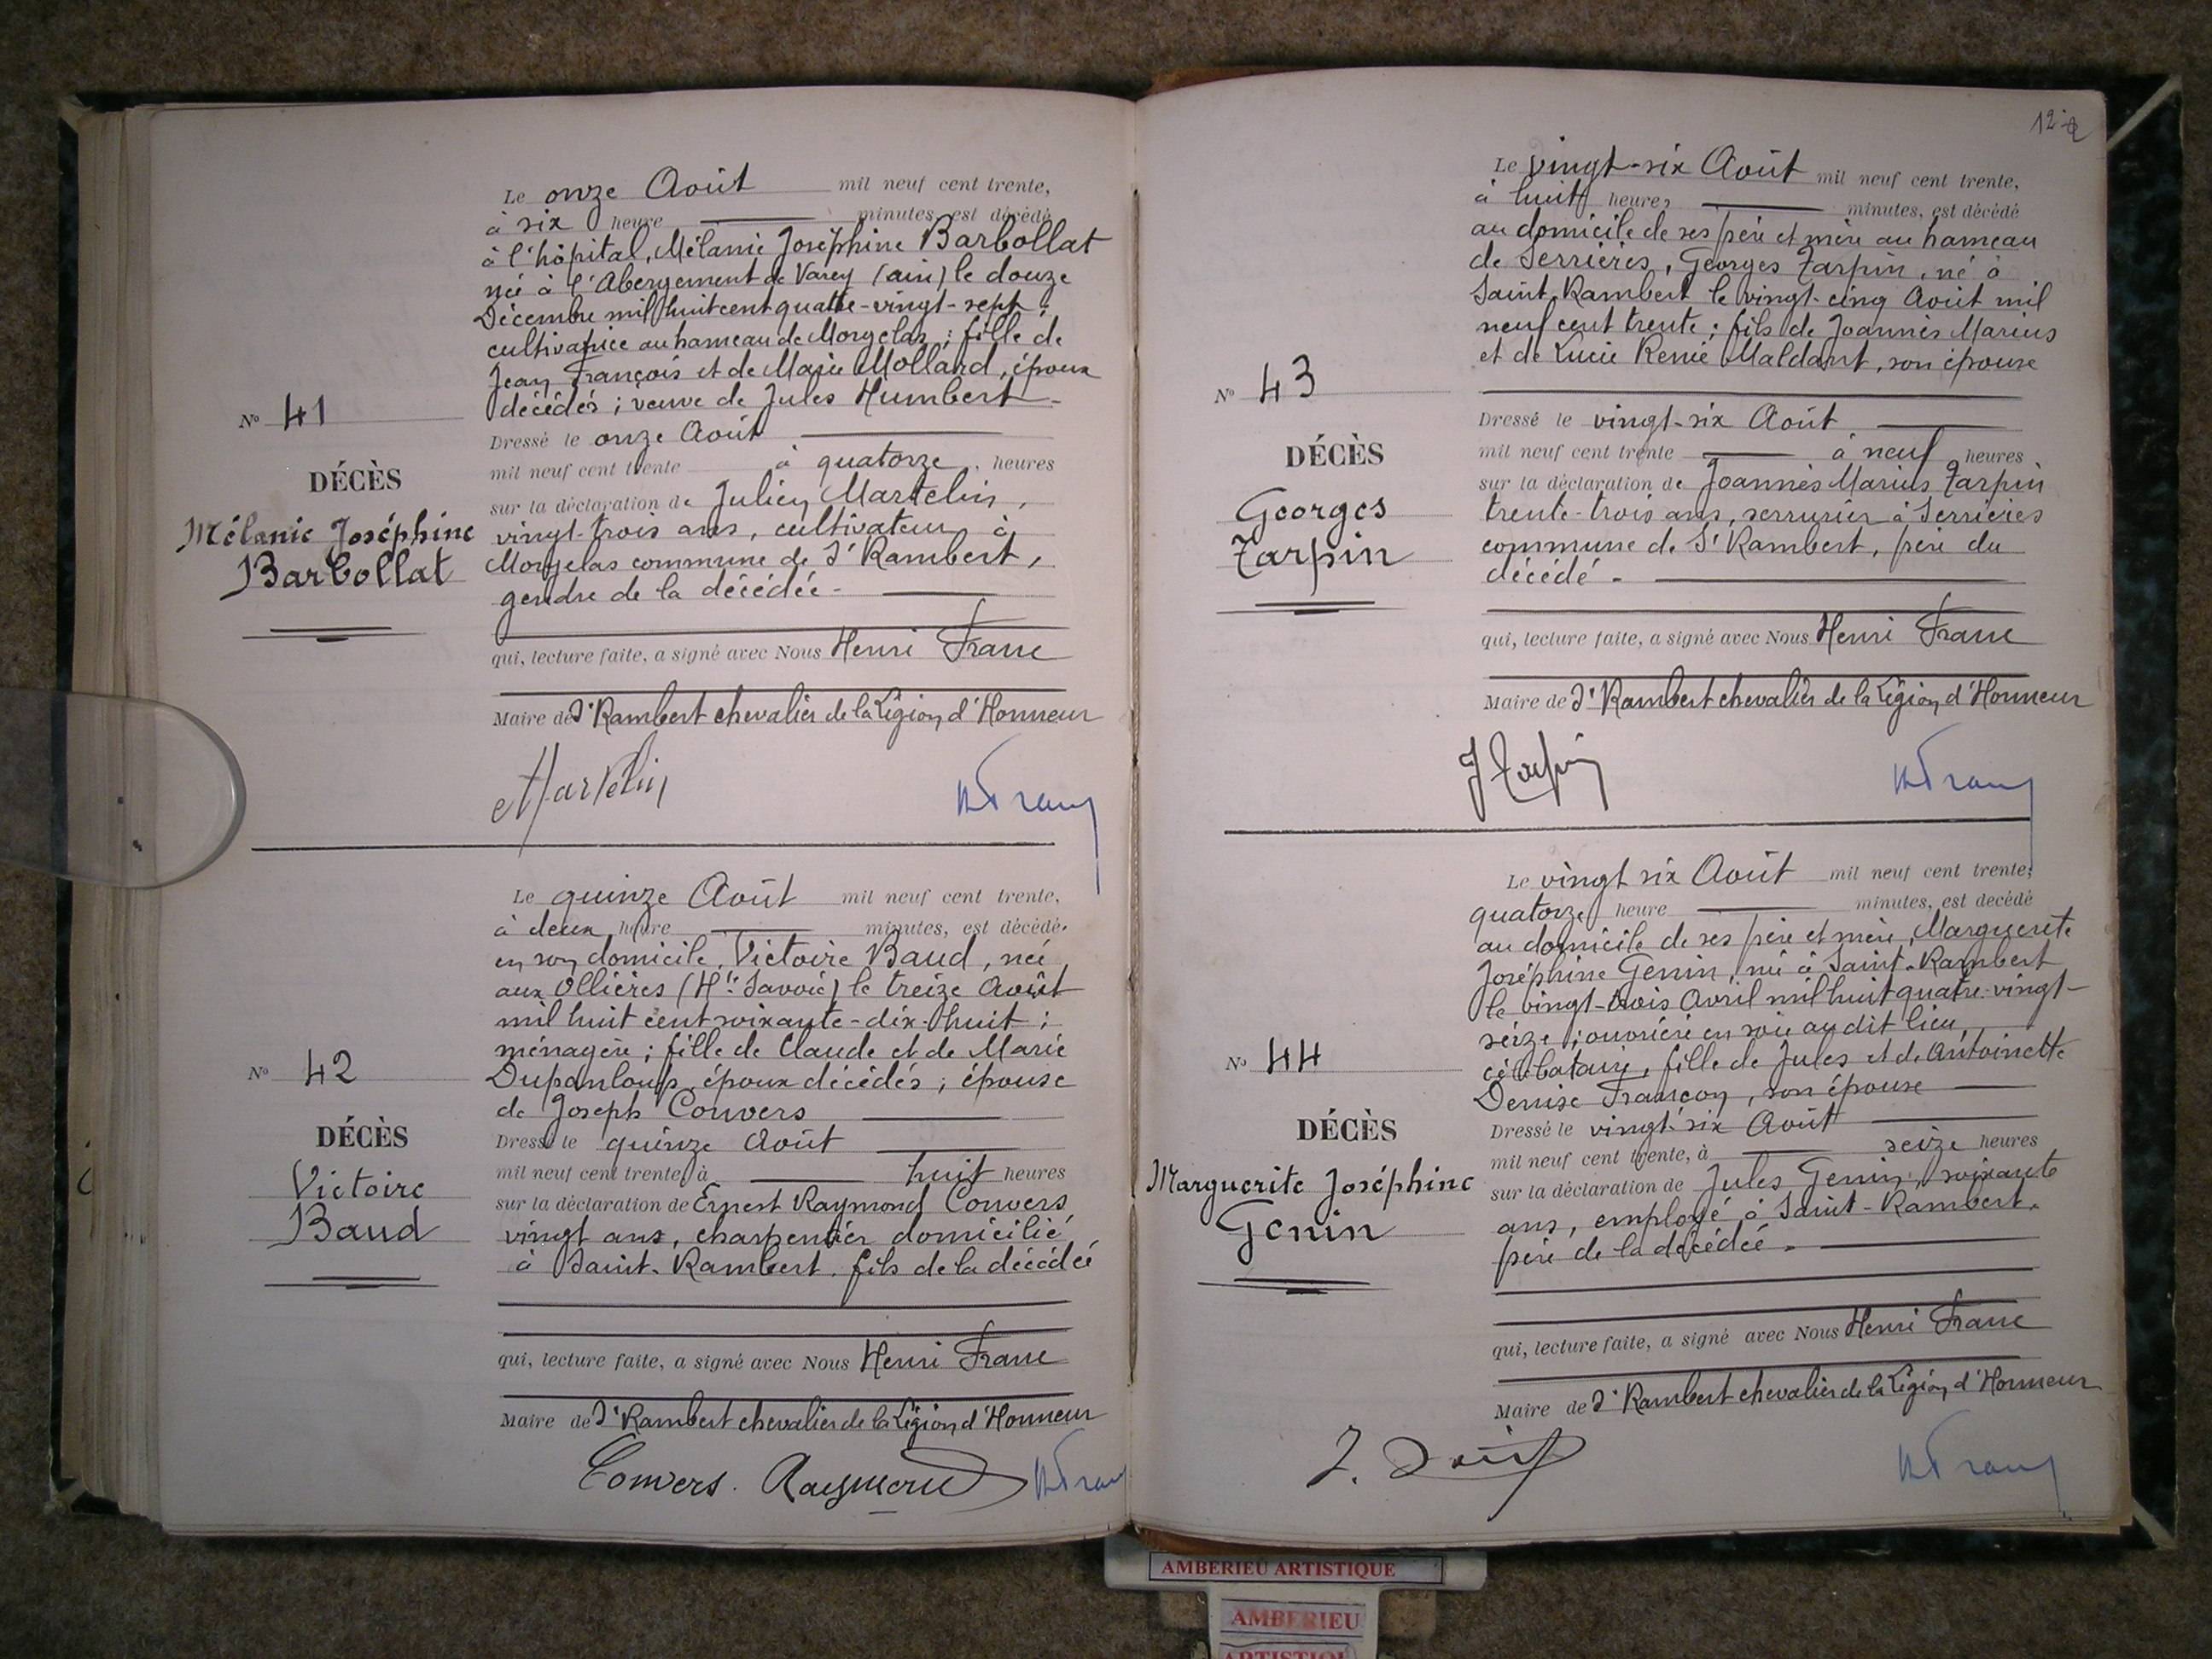 Le onze Août mil neuf cent trente,
à six heure minutes, est décédé
à l'hôpital, Mélanie Joséphine Barbollat
née à l'Abergement de Varey (ain) le douze
Décembre mil huit cent quatre-vingt-sept;
cultivatrice au hameau de Morgelas; fille de
Jean François et de Marie Mollard, époux
décédés; veuve de Jules Humbert
Nº 41
DÉCÈS
Mélanie Joséphine
Barbollat
Dressé le onze Août
mil neuf cent trente à quatorze heures
sur la déclaration de Julien Martelin,
vingt-trois ans, cultivateur à
Morgelas commune de St Rambert,
gendre de la décédée.
qui, lecture faite, a signé avec Nous Henri Franc
Maire de St Rambert chevalier de la Légion d'Honneur
Martelin
Le quinze Août mil neuf cent trente,
à deux heure minutes, est décédé.
en son domicile, Victoire Baud, née
aux Ollières (Hte Savoie) le treize Août
mil huit cent soixante-dix-huit;
ménagère; fille de Claude et de Marie
Dupanloup, époux décédés; épouse
de Joseph Convers
Nº 42
DÉCÈS
Victoire
Baud
Dressé le quinze Août
mil neuf cent trente, à huit heures
sur la déclaration de Ernest Raymond Convers
vingt ans, charpentier domicilié
à Saint-Rambert, fils de la décédée
qui, lecture faite, a signé avec Nous Henri Franc
Maire de St Rambert chevalier de la Légion d'Honneur
Convers. Raymond
Le vingt-six Août mil neuf cent trente,
à huit heures minutes, est décédé
au domicile de ses père et mère au hameau
de Serrières, Georges Tarpin, né à
Saint Rambert le vingt-cinq Août mil
neuf cent trente; fils de Joannès Marius
et de Lucie Renée Maldant, son épouse
Nº 43
DÉCÈS
Georges
Tarpin
Dressé le vingt-six Août
mil neuf cent trente à neuf heures
sur la déclaration de Joannès Marius Tarpin
trente-trois ans, serrurier à Serrières
commune de St Rambert, père du
décédé.
qui, lecture faite, a signé avec Nous Henri Franc
Maire de St Rambert chevalier de la Légion d'Honneur
J Tarpin
Le vingt six Août mil neuf cent trente,
quatorze heure minutes, est decédé
au domicile de ses père et mère, Marguerite
Joséphine Genin, née à Saint-Rambert
le vingt-trois Avril mil huit quatre-vingt-
seize; ouvrière en soie au dit lieu,
célibataire, fille de Jules et de Antoinette
Denise Françon, son épouse
Nº 44
DÉCÈS
Marguerite Joséphine
Genin
Dressé le vingt-six Août
mil neuf cent trente, à seize heures
sur la déclaration de Jules Genin, soixante
ans, employé à Saint-Rambert,
père de la décédée.
qui, lecture faite, a signé avec Nous Henri Franc
Maire de St Rambert chevalier de la Légion d'Honneur
AMBERIEU ARTISTIQUE
AMBERIEU
ARTISTIQUE